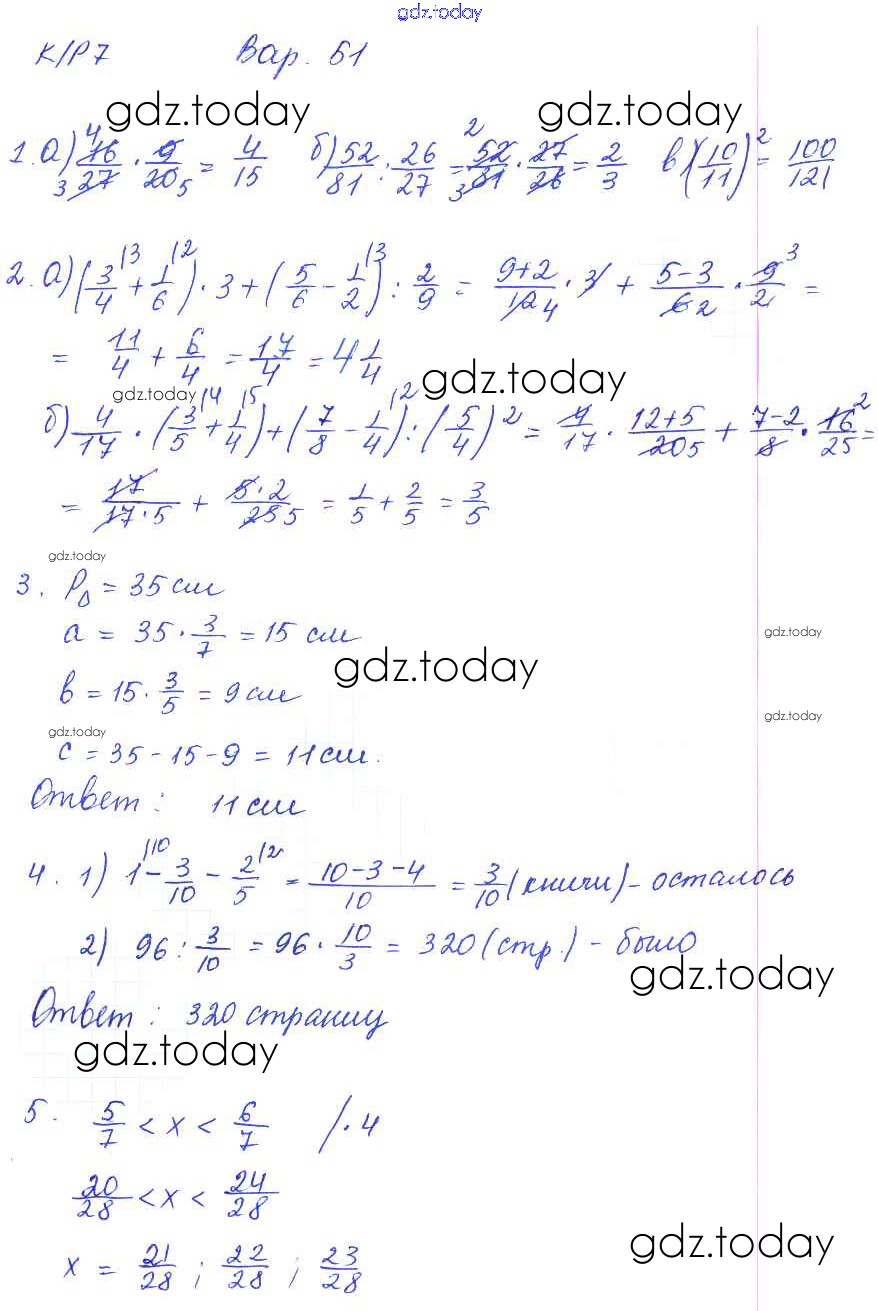 gdz.today
К/Р 7 Вар. Б1
gdz.today gdz.today
1. а) 16/27 · 9/20 = 4/15 б) 52/81 : 26/27 = 52/81 · 27/26 = 2/3 в) (10/11)² = 100/121
2. а) (3/4 + 1/6) · 3 + (5/6 − 1/2) : 2/9 = 9+2/12 · 3 + 5−3/6 · 9/2 =
= 11/4 + 6/4 = 17/4 = 4 1/4
gdz.today gdz.today
б) 4/17 · (3/5 + 1/4) + (7/8 − 1/4) : (5/4)² = 4/17 · 12+5/20 + 7−2/8 · 16/25 =
= 17/17·5 + 5·2/25 = 1/5 + 2/5 = 3/5
gdz.today
3. P△ = 35 см
a = 35 · 3/7 = 15 см
gdz.today
gdz.today
в = 15 · 3/5 = 9 см
gdz.today
gdz.today
с = 35 − 15 − 9 = 11 см.
Ответ: 11 см
4. 1) 1 − 3/10 − 2/5 = 10−3−4/10 = 3/10 (книги) − осталось
2) 96 : 3/10 = 96 · 10/3 = 320 (стр.) − было
gdz.today
Ответ: 320 страниц
gdz.today
5. 5/7 < x < 6/7 / · 4
20/28 < x < 24/28
gdz.today
x = 21/28 ; 22/28 ; 23/28